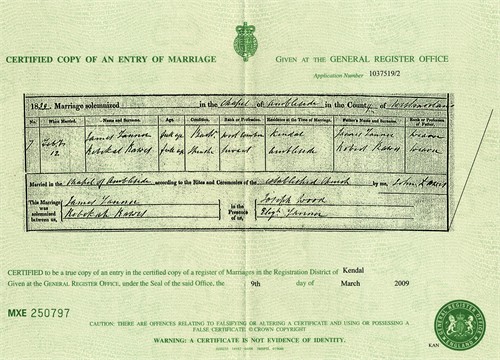 CERTIFIED COPY OF AN ENTRY OF MARRIAGE
GIVEN AT THE GENERAL REGISTER OFFICE
Application Number 1037519/2
Marriage solemnized in the Chapel of Ambleside in the County of Westmorland
No. When Married. Name and Surname. Age. Condition. Rank or Profession. Residence at the Time of Marriage. Father's Name and Surname. Rank or Profession of Father.
7 James Tanner full age Kendal James Tanner Weaver
12. Rebekah Rawes full age Servant Ambleside Robert Rawes Weaver
Married in the Chapel of Ambleside according to the Rites and Ceremonies of the Established Church by me,
This Marriage was solemnized between us, James Tanner Rebekah Rawes in the Presence of us, Joseph Wood Tanner
CERTIFIED to be a true copy of an entry in the certified copy of a register of Marriages in the Registration District of Kendal
Given at the GENERAL REGISTER OFFICE, under the Seal of the said Office, the 9th day of March 2009
MXE 250797
CAUTION: THERE ARE OFFENCES RELATING TO FALSIFYING OR ALTERING A CERTIFICATE AND USING OR POSSESSING A
FALSE CERTIFICATE. ©CROWN COPYRIGHT
WARNING: A CERTIFICATE IS NOT EVIDENCE OF IDENTITY.
GENERAL REGISTER OFFICE
ENGLAND
KAN